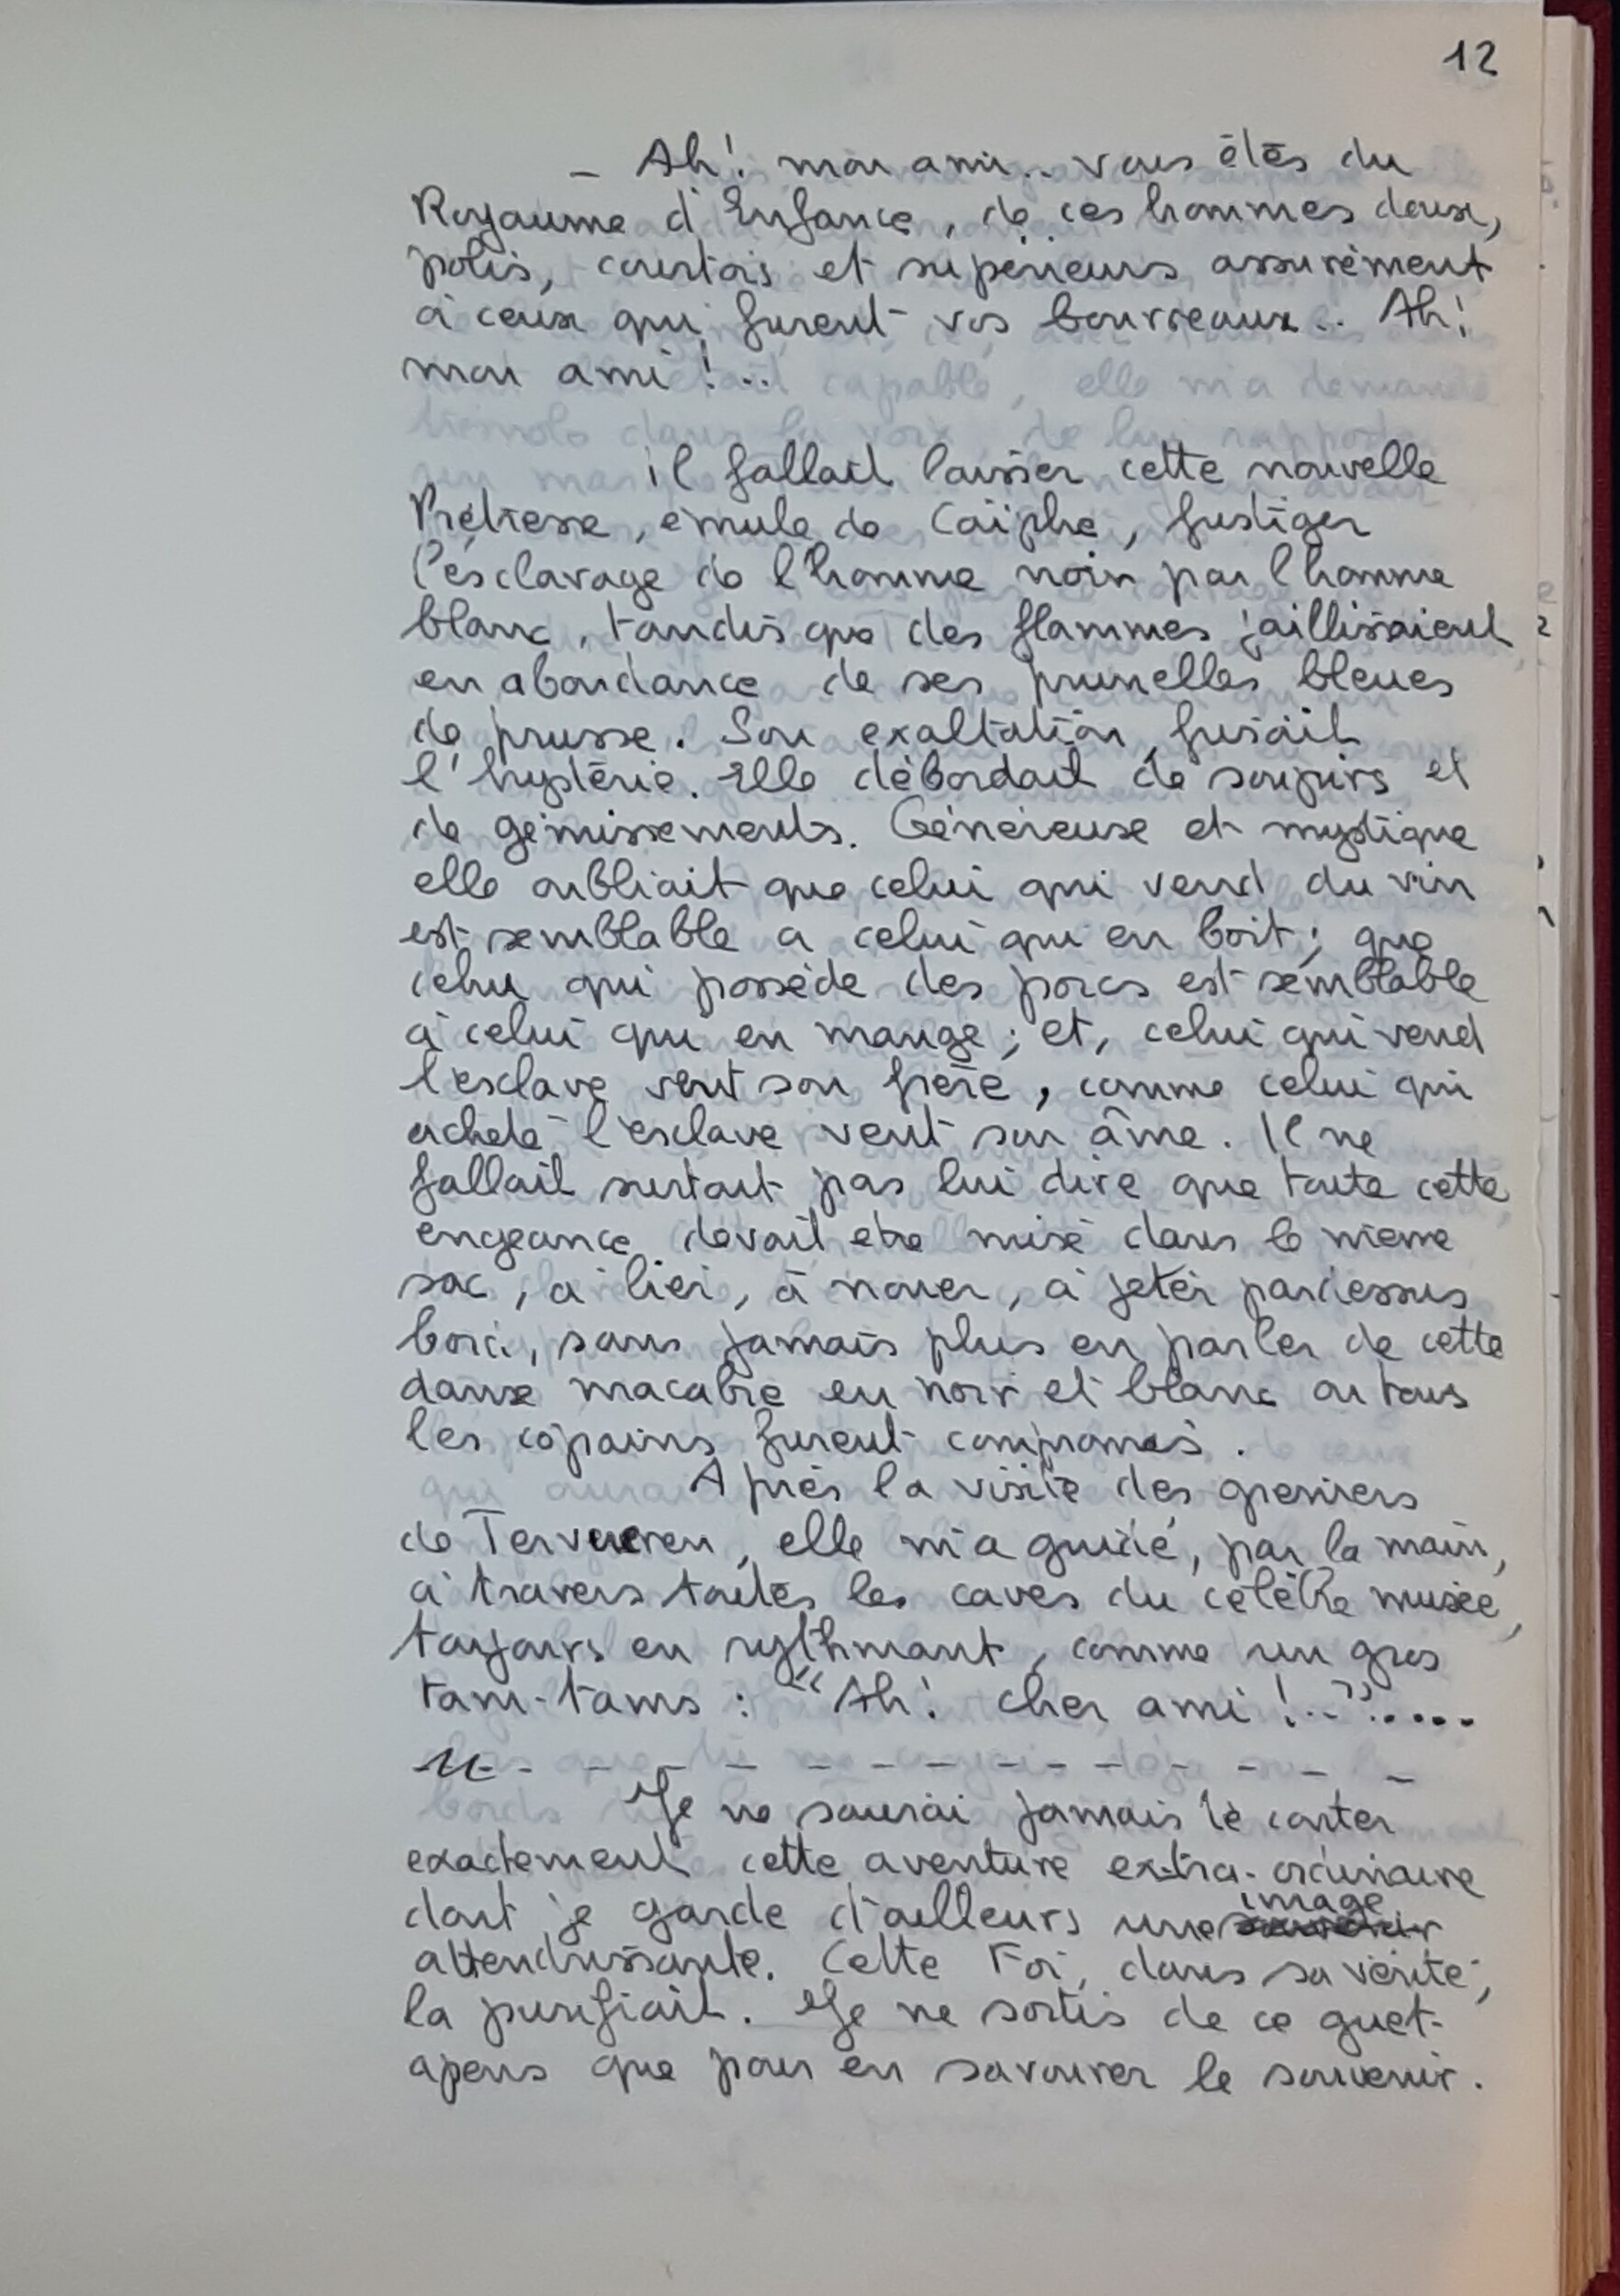 12
- Ah! mon ami.. vous êtes du
Royaume d'Enfance, de ces hommes doux,
polis, courtois et supérieurs assurément
à ceux qui furent vos bourreaux.. Ah!
mon ami!...
il fallait laisser cette nouvelle
Prêtresse, émule de Caïphe, fustiger
l'esclavage de l'homme noir par l'homme
blanc, tandis que des flammes jaillissaient
en abondance de ses prunelles bleues
de prusse. Son exaltation fusait
l'hystérie. Elle débordait de soupirs et
de gémissements. Généreuse et mystique
elle oubliait que celui qui vend du vin
est semblable a celui qui en boit; que
celui qui possède des porcs est semblable
à celui qui en mange; et, celui qui vend
l'esclave vent son frère, comme celui qui
achete l'esclave vent son âme. Il ne
fallait surtout pas lui dire que toute cette
engeance devait etre mise dans le même
sac, à lier, à nouer, à jeter pardessus
bord, sans jamais plus en parler de cette
danse macabre en noir et blanc ou tous
les copains furent compromis.
Après la visite des greniers
de Tervueren, elle m'a guidé, par la main,
à travers toutes les caves du célèbre musée,
toujours en rythmant, comme un gros
tam-tams : "Ah! cher ami!.."....
- - - - - - - - - - - -
Je ne saurai jamais te conter
exactement cette aventure extra-ordinaire
image
dont je garde d'ailleurs une souvenir
attendrissante. Cette Foi, dans sa vérité,
la purifiait. Je ne sortis de ce guet-
apens que pour en savourer le souvenir.